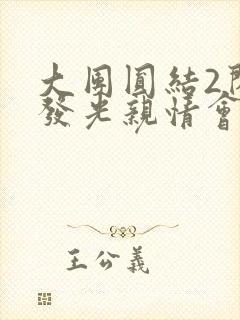 大團圓結2閃
發光親情會
王公義